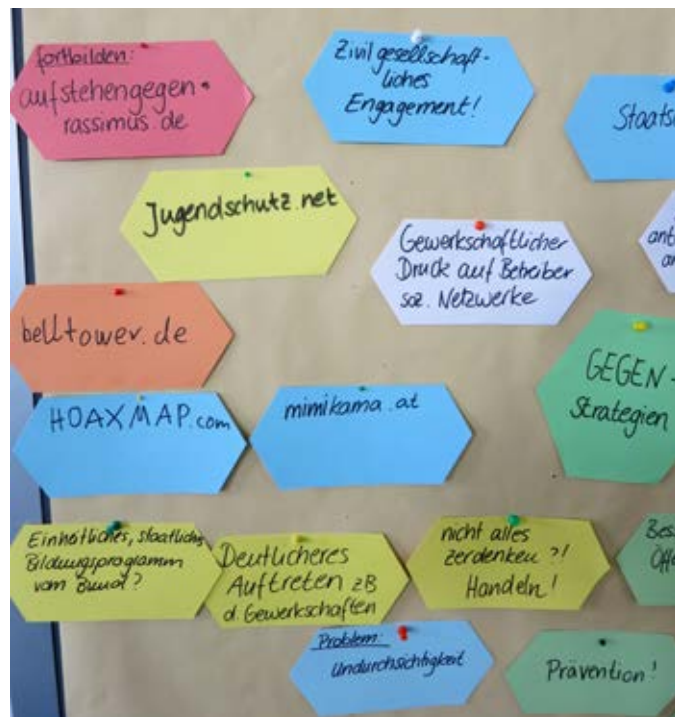 fortbilden:
aufstehengegen-
rassimus.de
Zivilgesellschaft-
liches
Engagement!
Staats
Jugendschutz.net
Gewerkschaftlicher
Druck auf Betreiber
soz. Netzwerke
ant
belltower.de
GEGEN-
Strategien
HOAXMAP.com
mimikama.at
Einheitliches, staatliches
Bildungsprogramm
vom Bund?
Deutlicheres
Auftreten zB
d. Gewerkschaften
nicht alles
zerdenken?!
Handeln!
Bes
Öff
Problem:
Undurchsichtigkeit
Prävention!